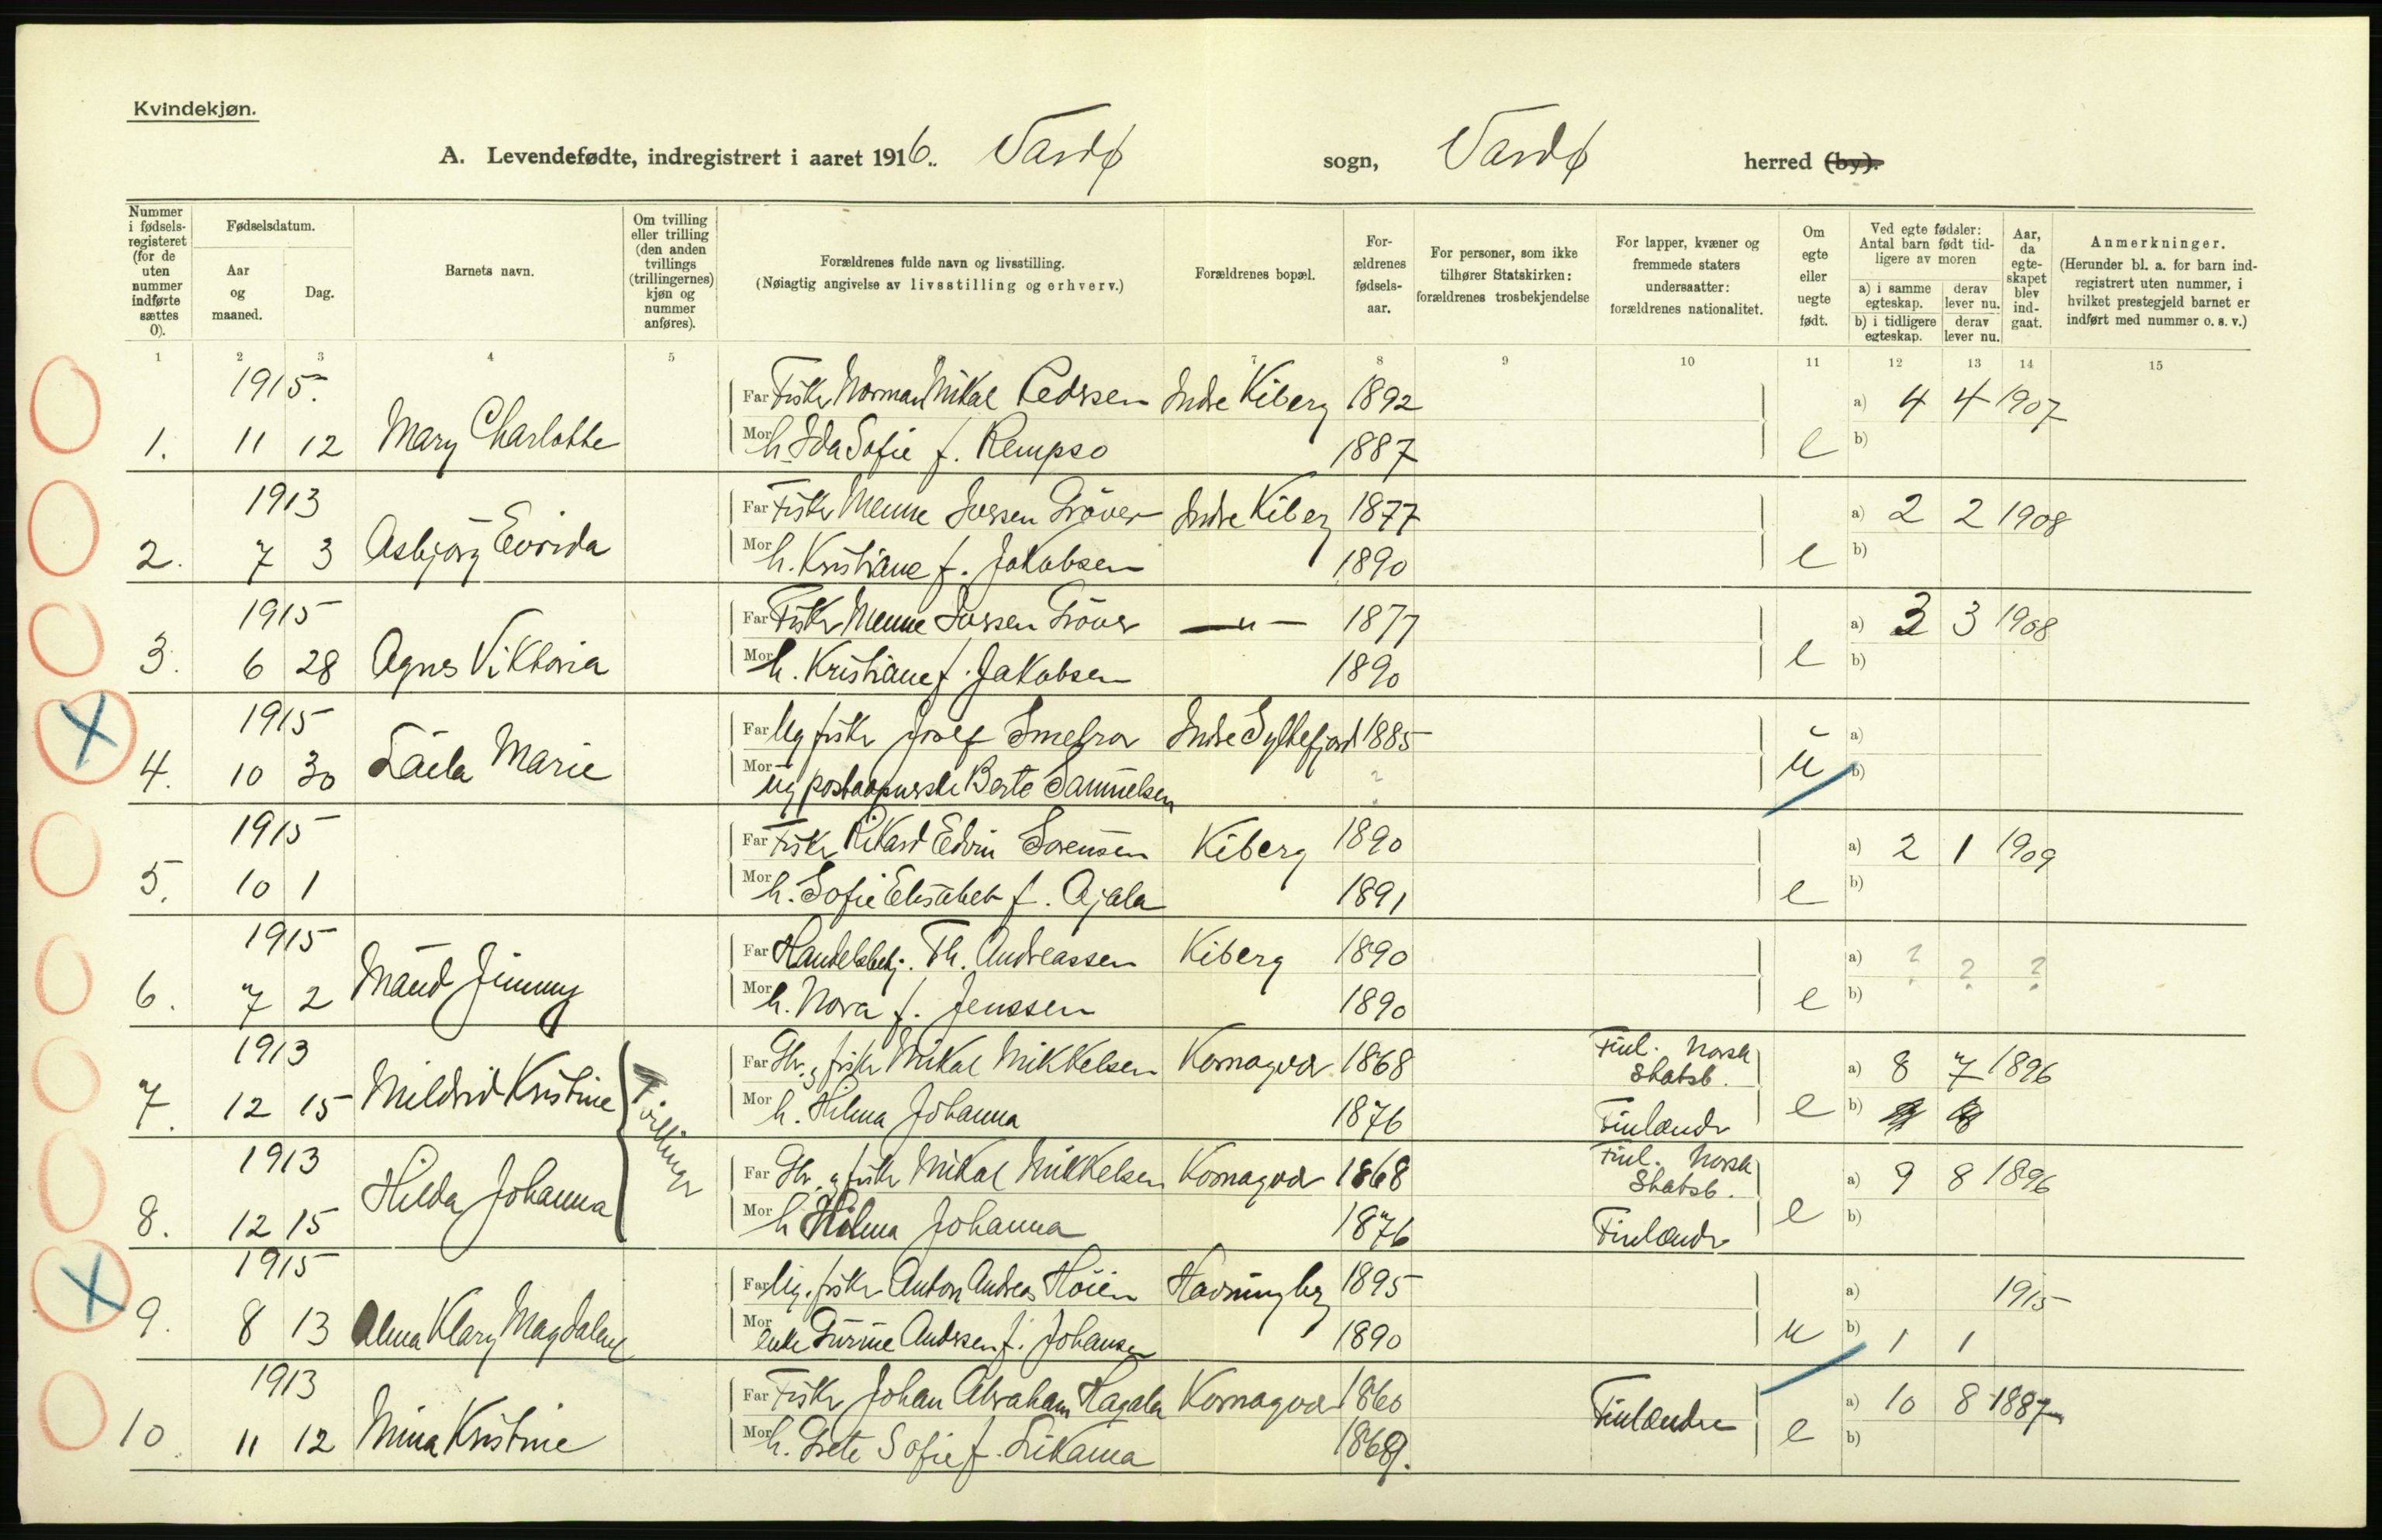 Kvindekjøn.
A. Levendefødte, indregistrert i aaret 1916. Vardø sogn, Vardø herred (by).
Nummer i fødsels-registeret (for de uten nummer indførte sættes 0).
Fødselsdatum.
Aar og maaned.
Dag.
Barnets navn.
Om tvilling eller trilling (den anden tvillings (trillingernes) kjøn og nummer anføres).
Forældrenes fulde navn og livsstilling.
(Nøiagtig angivelse av livsstilling og erhverv.)
Forældrenes bopæl.
For-ældrenes fødsels-aar.
For personer, som ikke tilhører Statskirken: forældrenes trosbekjendelse
For lapper, kvæner og fremmede staters undersaatter: forældrenes nationalitet.
Om egte eller uegte født.
Ved egte fødsler: Antal barn født tid-ligere av moren
a) i samme egteskap.
derav lever nu.
b) i tidligere egteskap.
derav lever nu.
Aar, da egte-skapet blev ind-gaat.
Anmerkninger.
(Herunder bl. a. for barn ind-registrert uten nummer, i hvilket prestegjeld barnet er indført med nummer o. s. v.)
1 2 3 4 5 7 8 9 10 11 12 13 14 15
1915. Far Fisker Norman Mikal Pedersen Indre Kiberg 1892 a) 4 4 1907
1. 11 12 Mary Charlotte Mor h. Ida Sofie f. Kempso 1887 e b)
1913 Far Fisker Menne Iversen Gröver Indre Kiberg 1877 a) 2 2 1908
2. 7 3 Asbjørg Evida Mor h. Kristiane f. Jakobsen 1890 e b)
1915 Far Fisker Menne Iversen Gröver —"— 1877 a) 3 3 1908
3. 6 28 Agnes Viktoria Mor h. Kristiane f. Jakobsen 1890 e b)
1915 Far Ug fisker Josef Indre Syltefjord 1885 a)
4. 10 30 Laila Marie Mor ug postaapnerske Berte Samuelsen ? u b)
1915 Far Fisker Rikard Edvin Sørensen Kiberg 1890 a) 2 1 1909
5. 10 1 Mor h. Sofie Elisabet f. Ajala 1891 e b)
1915 Far Handelsbetj. Th. Andreassen Kiberg 1890 a) ? ? ?
6. 7 2 Maud Jimmy Mor h. Nora f. Jenssen 1890 e b)
1913 Far Gbr. g fisker Mikal Mikkelsen Komagvær 1868 Finl. Norsk Statsb. a) 8 7 1896
7. 12 15 Mildrid Kristine Tvillinger Mor h. Hilma Johanna 1876 Finlandr e b)
1913 Far Gbr. g fisker Mikal Mikkelsen Komagvær 1868 Finl. Norsk Statsb. a) 9 8 1896
8. 12 15 Hilda Johanna Mor h Hilma Johanna 1876 Finlandr e b)
1915 Far Ug. fisker Anton Andreas Høien Havningberg 1895 a) 1915
9. 8 13 Alma Klary Magdalene Mor enke Gurine Andersen f. Johansen 1890 u b) 1 1
1913 Far Fisker Johan Abraham Hagala Komagvær 1860 Finlændere a) 10 8 1887
10. 11 12 Mina Kristine Mor h. Grete Sofie f. 1869. e b)